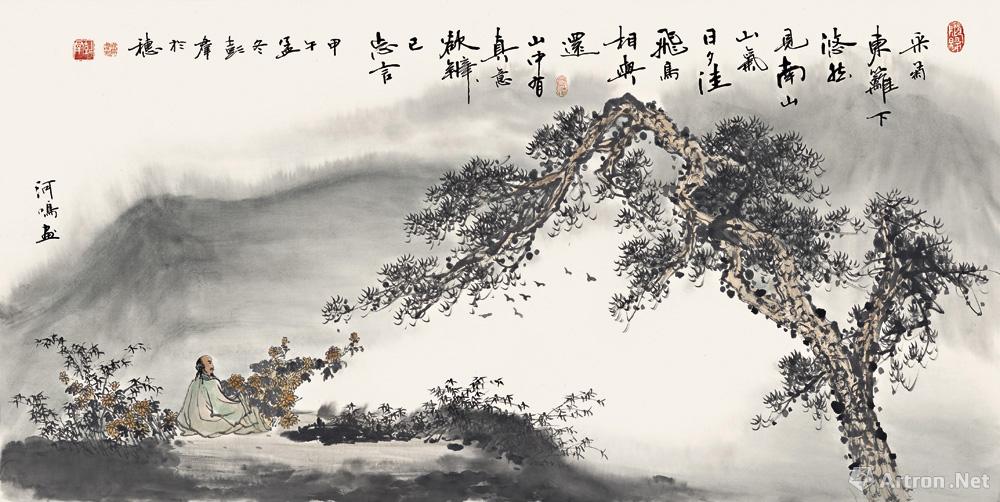 采菊
東籬下
悠然
見南山
山氣
日夕佳
飛鳥
相與
還
山中有
真意
欲辯
已
忘言
甲午孟冬彭於穗
河鳴畫
Artron.Net